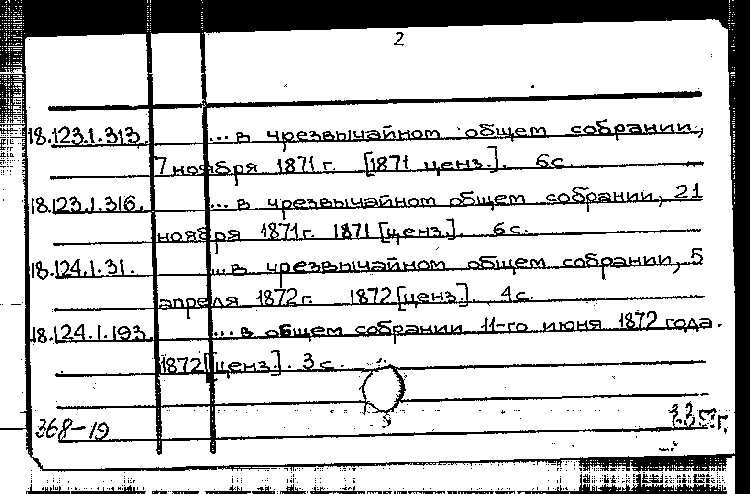 2
18.123.1.313. ... в чрезвычайном общем собрании,
7 ноября 1871 г. [1871 ценз.]. 6 с.
18.123.1.316. ... в чрезвычайном общем собрании, 21
ноября 1871 г. 1871 [ценз.]. 6 с.
18.124.1.31. ... в чрезвычайном общем собрании, 5
апреля 1872 г. 1872 [ценз.]. 4 с.
18.124.1.193. ... в общем собрании 11-го июня 1872 года.
1872 [ценз.]. 3 с.
368-19